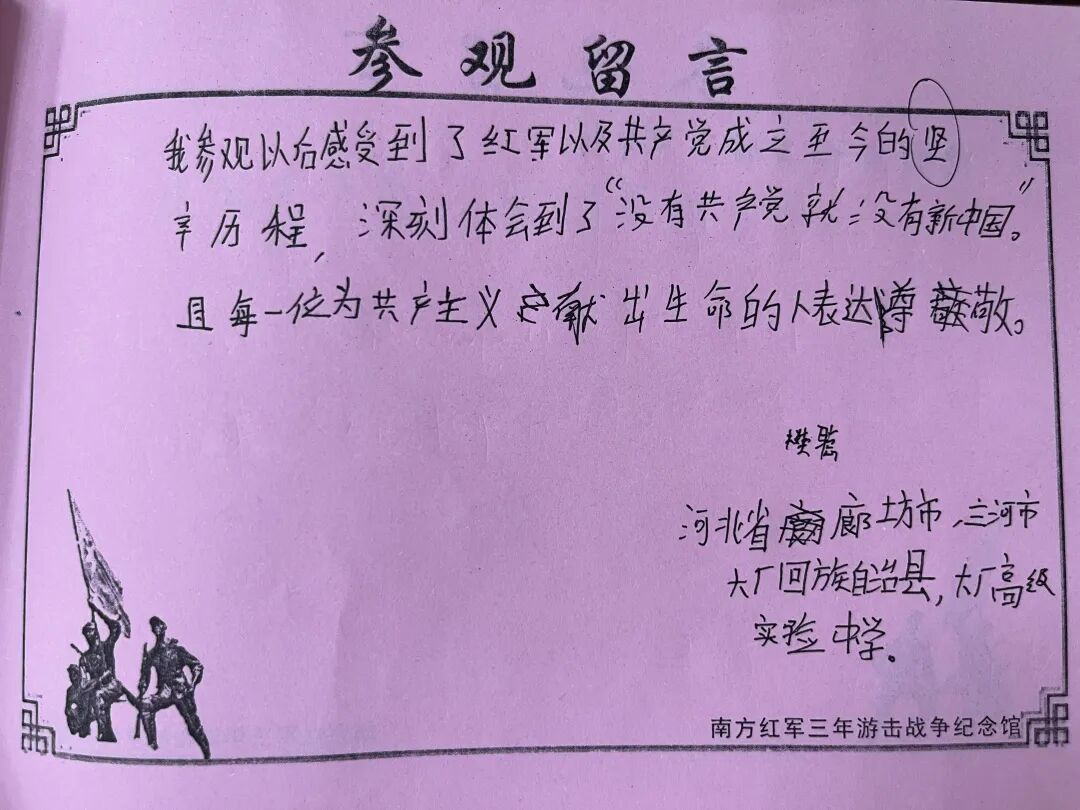 参观留言
我参观以后感受到了红军以及共产党成立至今的坚
辛历程，深刻体会到了“没有共产党就没有新中国。”
且每一位为共产主义献出生命的人表达尊敬。
樊
河北省廊坊市，三河市
大厂回族自治县，大厂高级
实验中学。
南方红军三年游击战争纪念馆